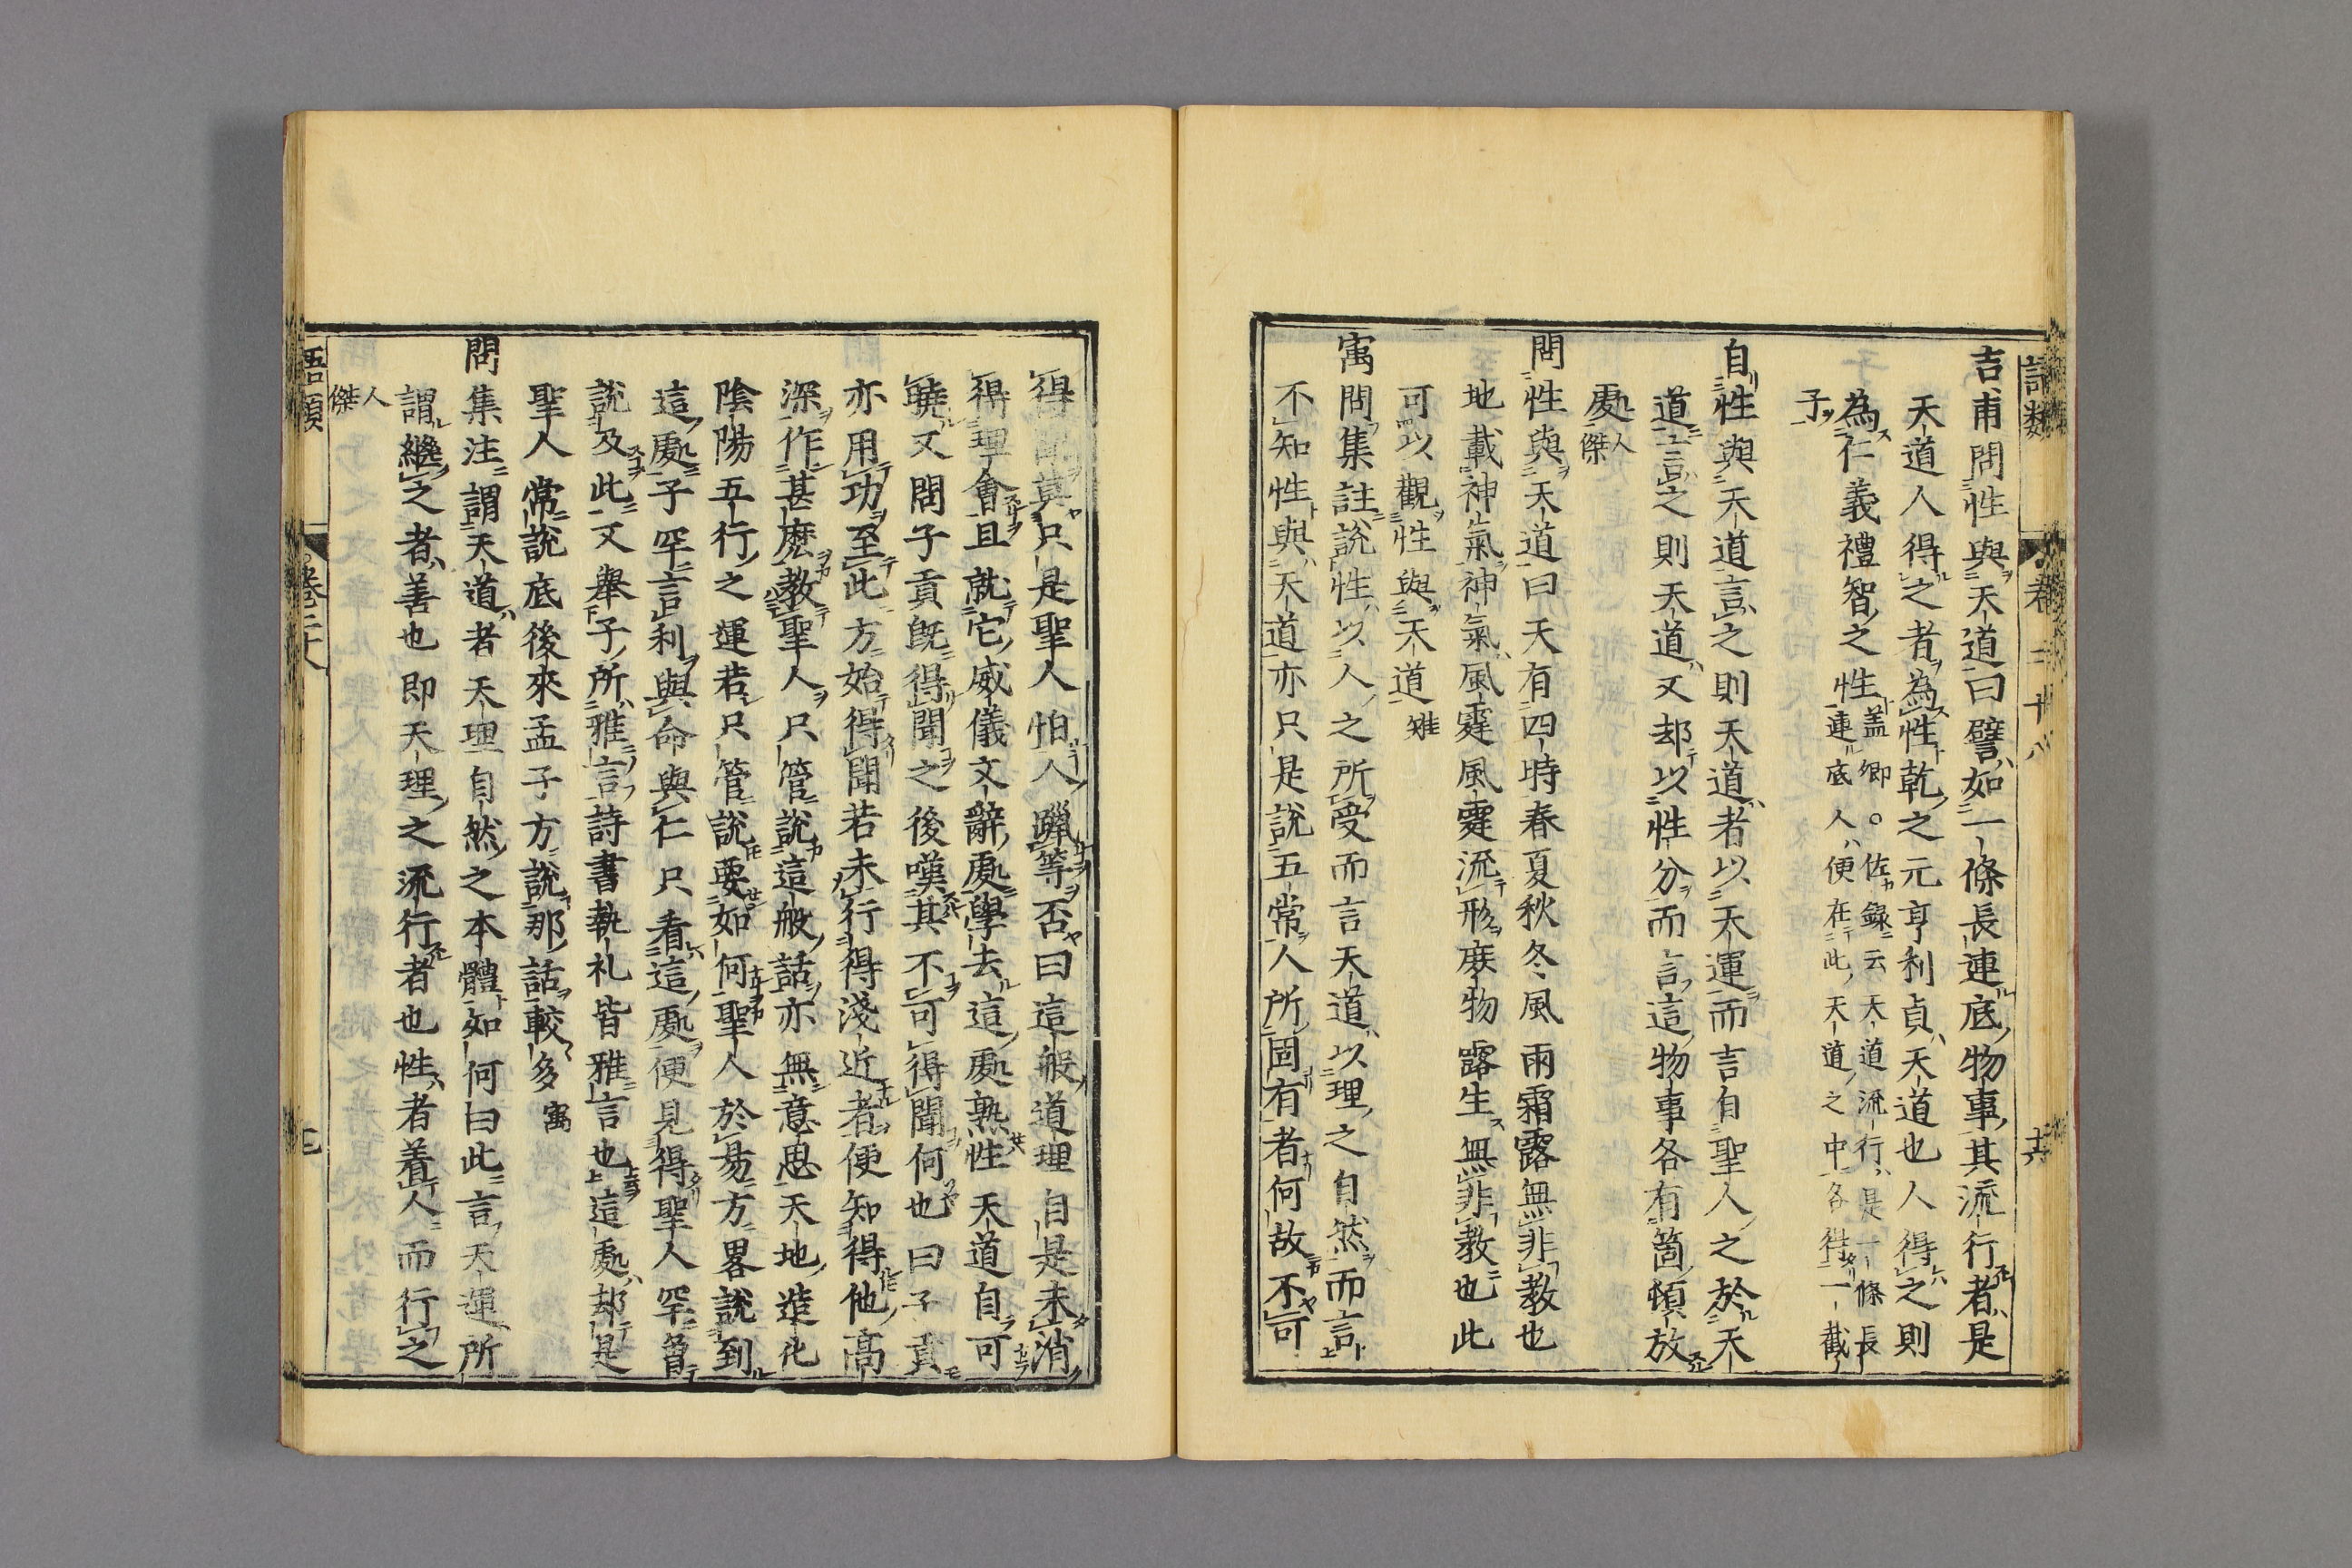 語類
卷二十八
十六
吉甫問性與天道曰譬如一條長連底物事其流行者是
天道人得之者為性乾之元亨利貞天道也人得之則
為仁義禮智之性
蓋卿○佐録云天道流行是一條長
連底人便在此天道之中各得一截
子
自性與天道言之則天道者以天運而言自聖人之於天
道言之則天道又却以性分而言這物事各有箇頓放
處
人
傑
問性與天道曰天有四時春夏秋冬風雨霜露無非教也
地載神氣神氣風霆風霆流形庶物露生無非教也此
可以觀性與天道雉
寓問集註說性以人之所受而言天道以理之自然而言
不知性與天道亦只是說五常人所固有者何故不可
得聞莫只是聖人怕人躐等否曰這般道理自是未消
得理會且就它威儀文辭處學去這處熟性天道自可
曉又問子貢既得聞之後嘆其不可得聞何也曰子貢
亦用功至此方始得聞若未行得淺近者便知得他高
深作甚麽教聖人只管說這般話亦無意思天地造化
陰陽五行之運若只管說要如何聖人於易方畧說到
這處子罕言利與命與仁只看這處便見得聖人罕曾
說及此又舉子所雅言詩書執礼皆雅言也這處却是
聖人常說底後來孟子方說那話較多寓
問集注謂天道者天理自然之本體如何曰此言天運所
謂繼之者善也即天理之流行者也性者着人而行之
人
傑
語類
卷二十八